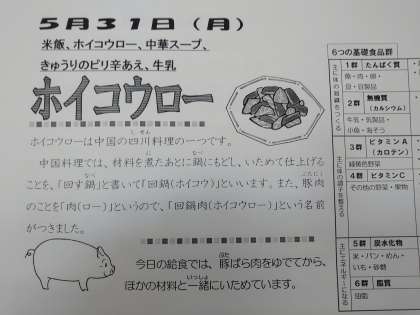 5月31日（月）
米飯、ホイコウロー、中華スープ、
きゅうりのピリ辛あえ、牛乳
ホイコウロー
ホイコウローは中国の四川料理の一つです。
中国料理では、材料を煮たあとに鍋にもどし、いためて仕上げる
ことを、「回す鍋」と書いて「回鍋(ホイコウ)」といいます。また、豚肉
のことを「肉(ロー)」というので、「回鍋肉(ホイコウロー)」という名前
がつきました。
今日の給食では、豚ばら肉をゆでてから、
ほかの材料と一緒にいためています。
6つの基礎食品群
主に体の組織をつくる
1群 たんぱく質
魚・肉・卵・
豆・豆製品
2群 無機質
(カルシウム)
牛乳・乳製品・
小魚・海そう
主に体の調子を整える
3群 ビタミンA
(カロテン)
緑黄色野菜
4群 ビタミンC
その他の野菜・果物
主にエネルギーになる
5群 炭水化物
米・パン・めん・
いも・砂糖
6群 脂質
油脂